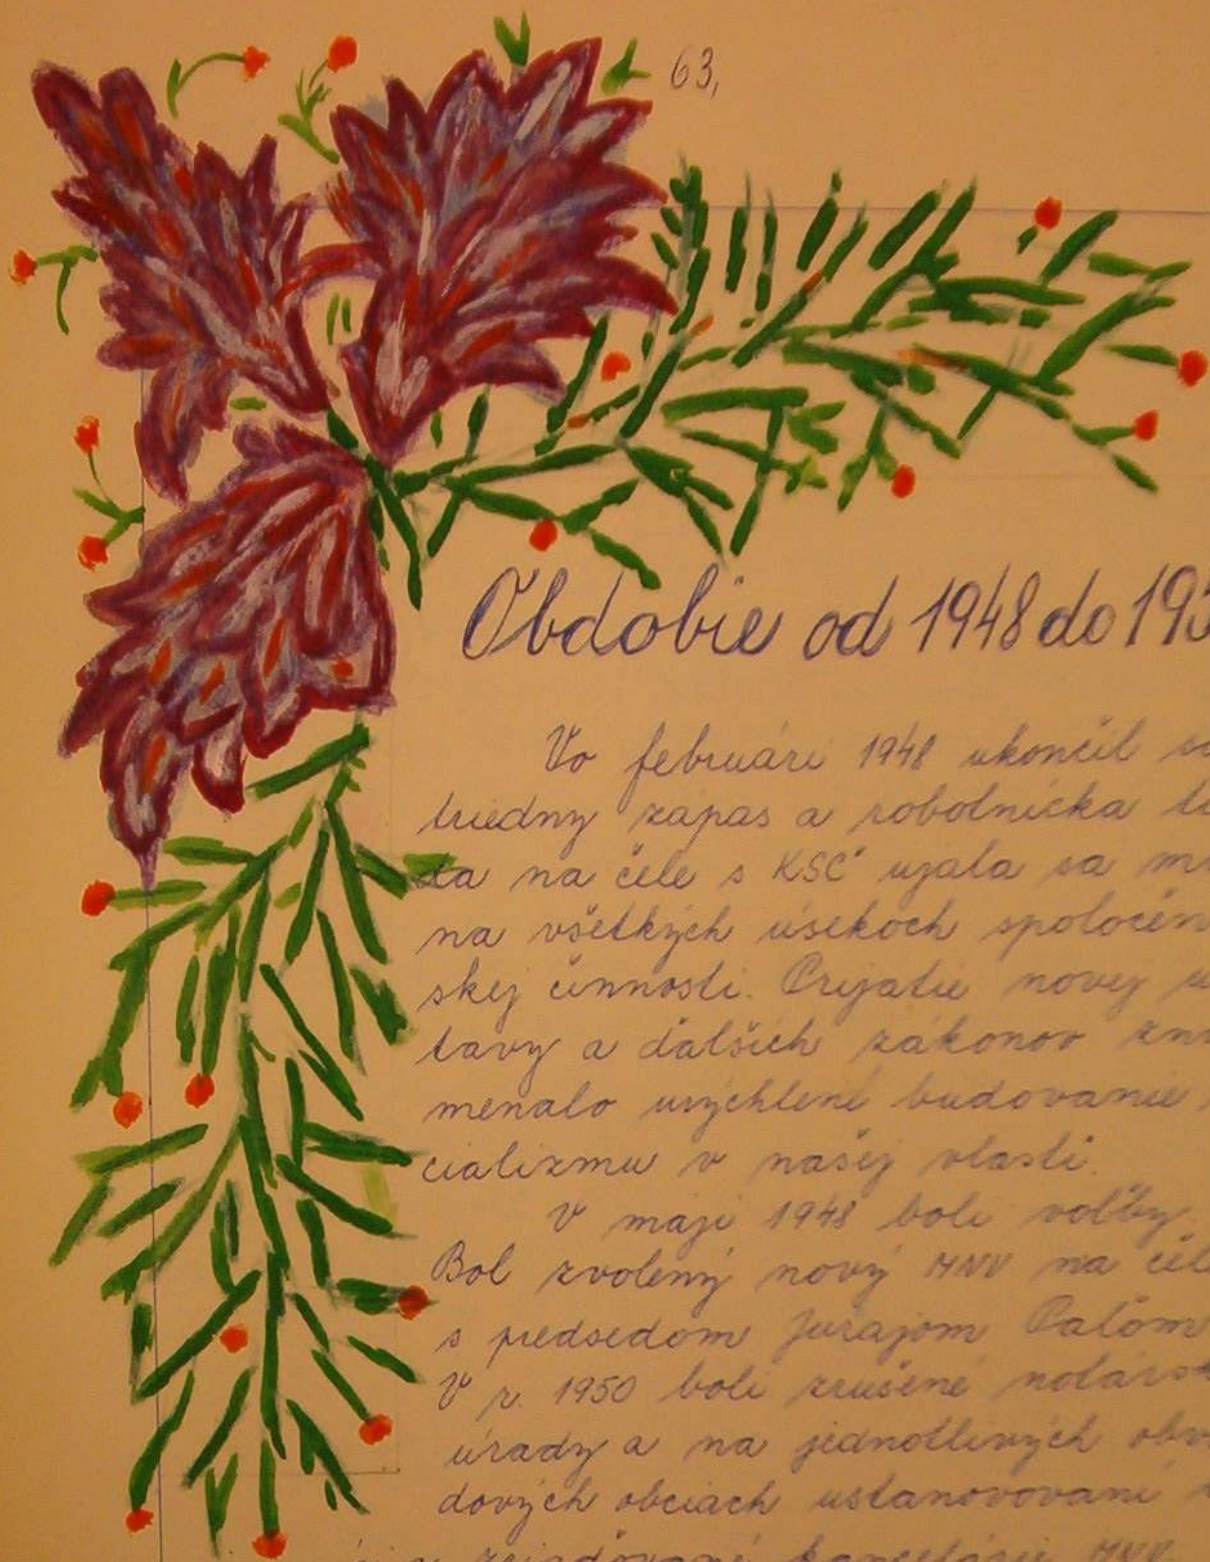 63,
Obdobie od 1948 do 195
Vo februári 1948 ukončil sa
triedny zápas a robotnícka tr
da na čele s KSČ ujala sa m
na všetkých úsekoch spoločen
skej činnosti. Prijatie novej ú
tavy a ďalších zákonov zna
menalo urýchlené budovanie
cializmu v našej vlasti.
V máji 1948 boli voľby.
Bol zvolený nový MNV na čel
s predsedom Jurajom Paľom
V r. 1950 boli zrušené notársk
úrady a na jednotlivých obv
dových obciach ustanovovaní
zriaďované kancelárie MNV